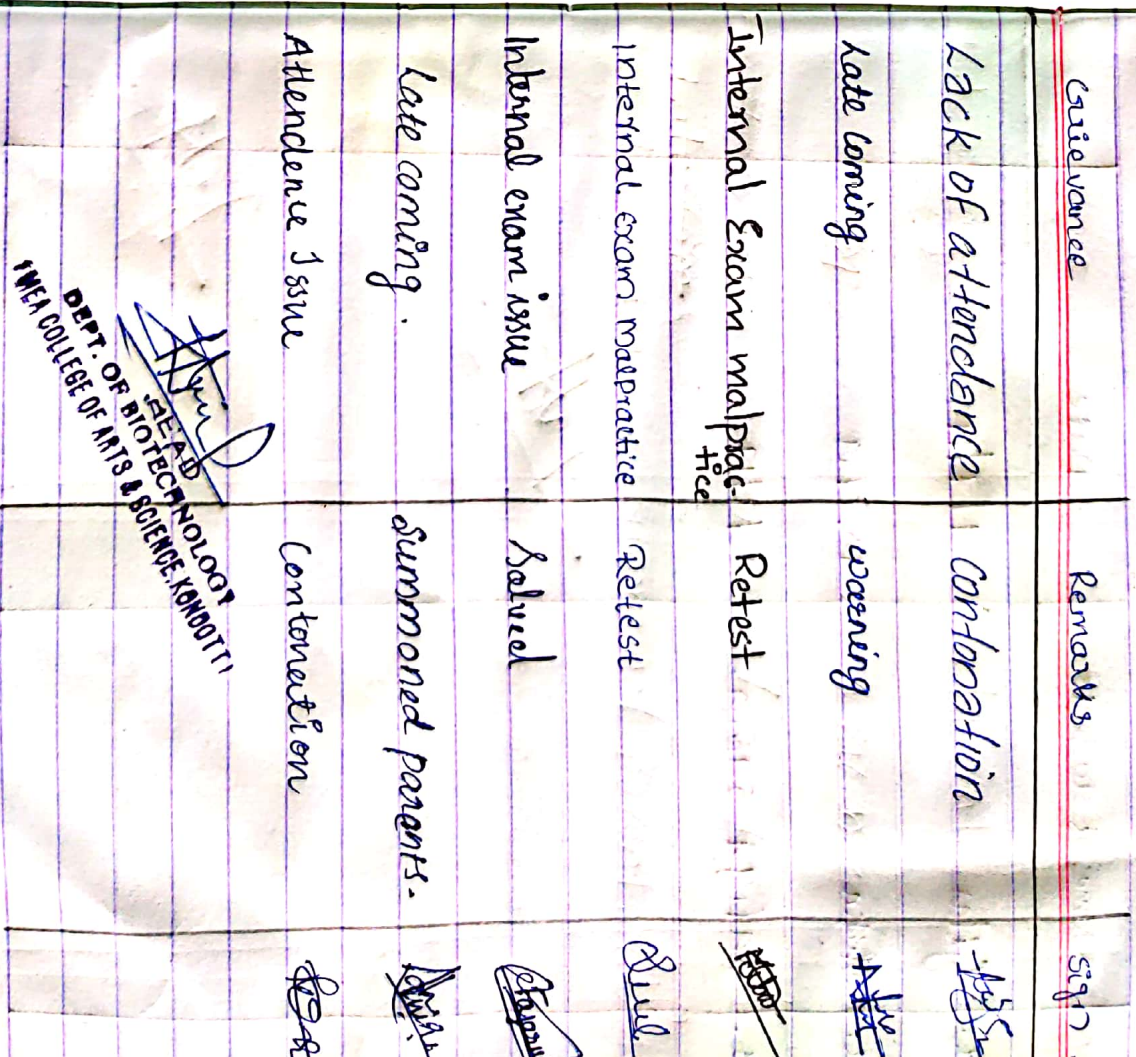 Grievance Remarks Sign
Lack of attendance Contonation
Late Coming warning
Internal Exam malprac-
tice Retest
Internal exam malpractice Retest
Internal exam issue Solved
Late coming. Summoned parents.
Attendence Issue Contonation
HEAD
DEPT. OF BIOTECHNOLOGY
COLLEGE OF ARTS & SCIENCE, KONDOTTI